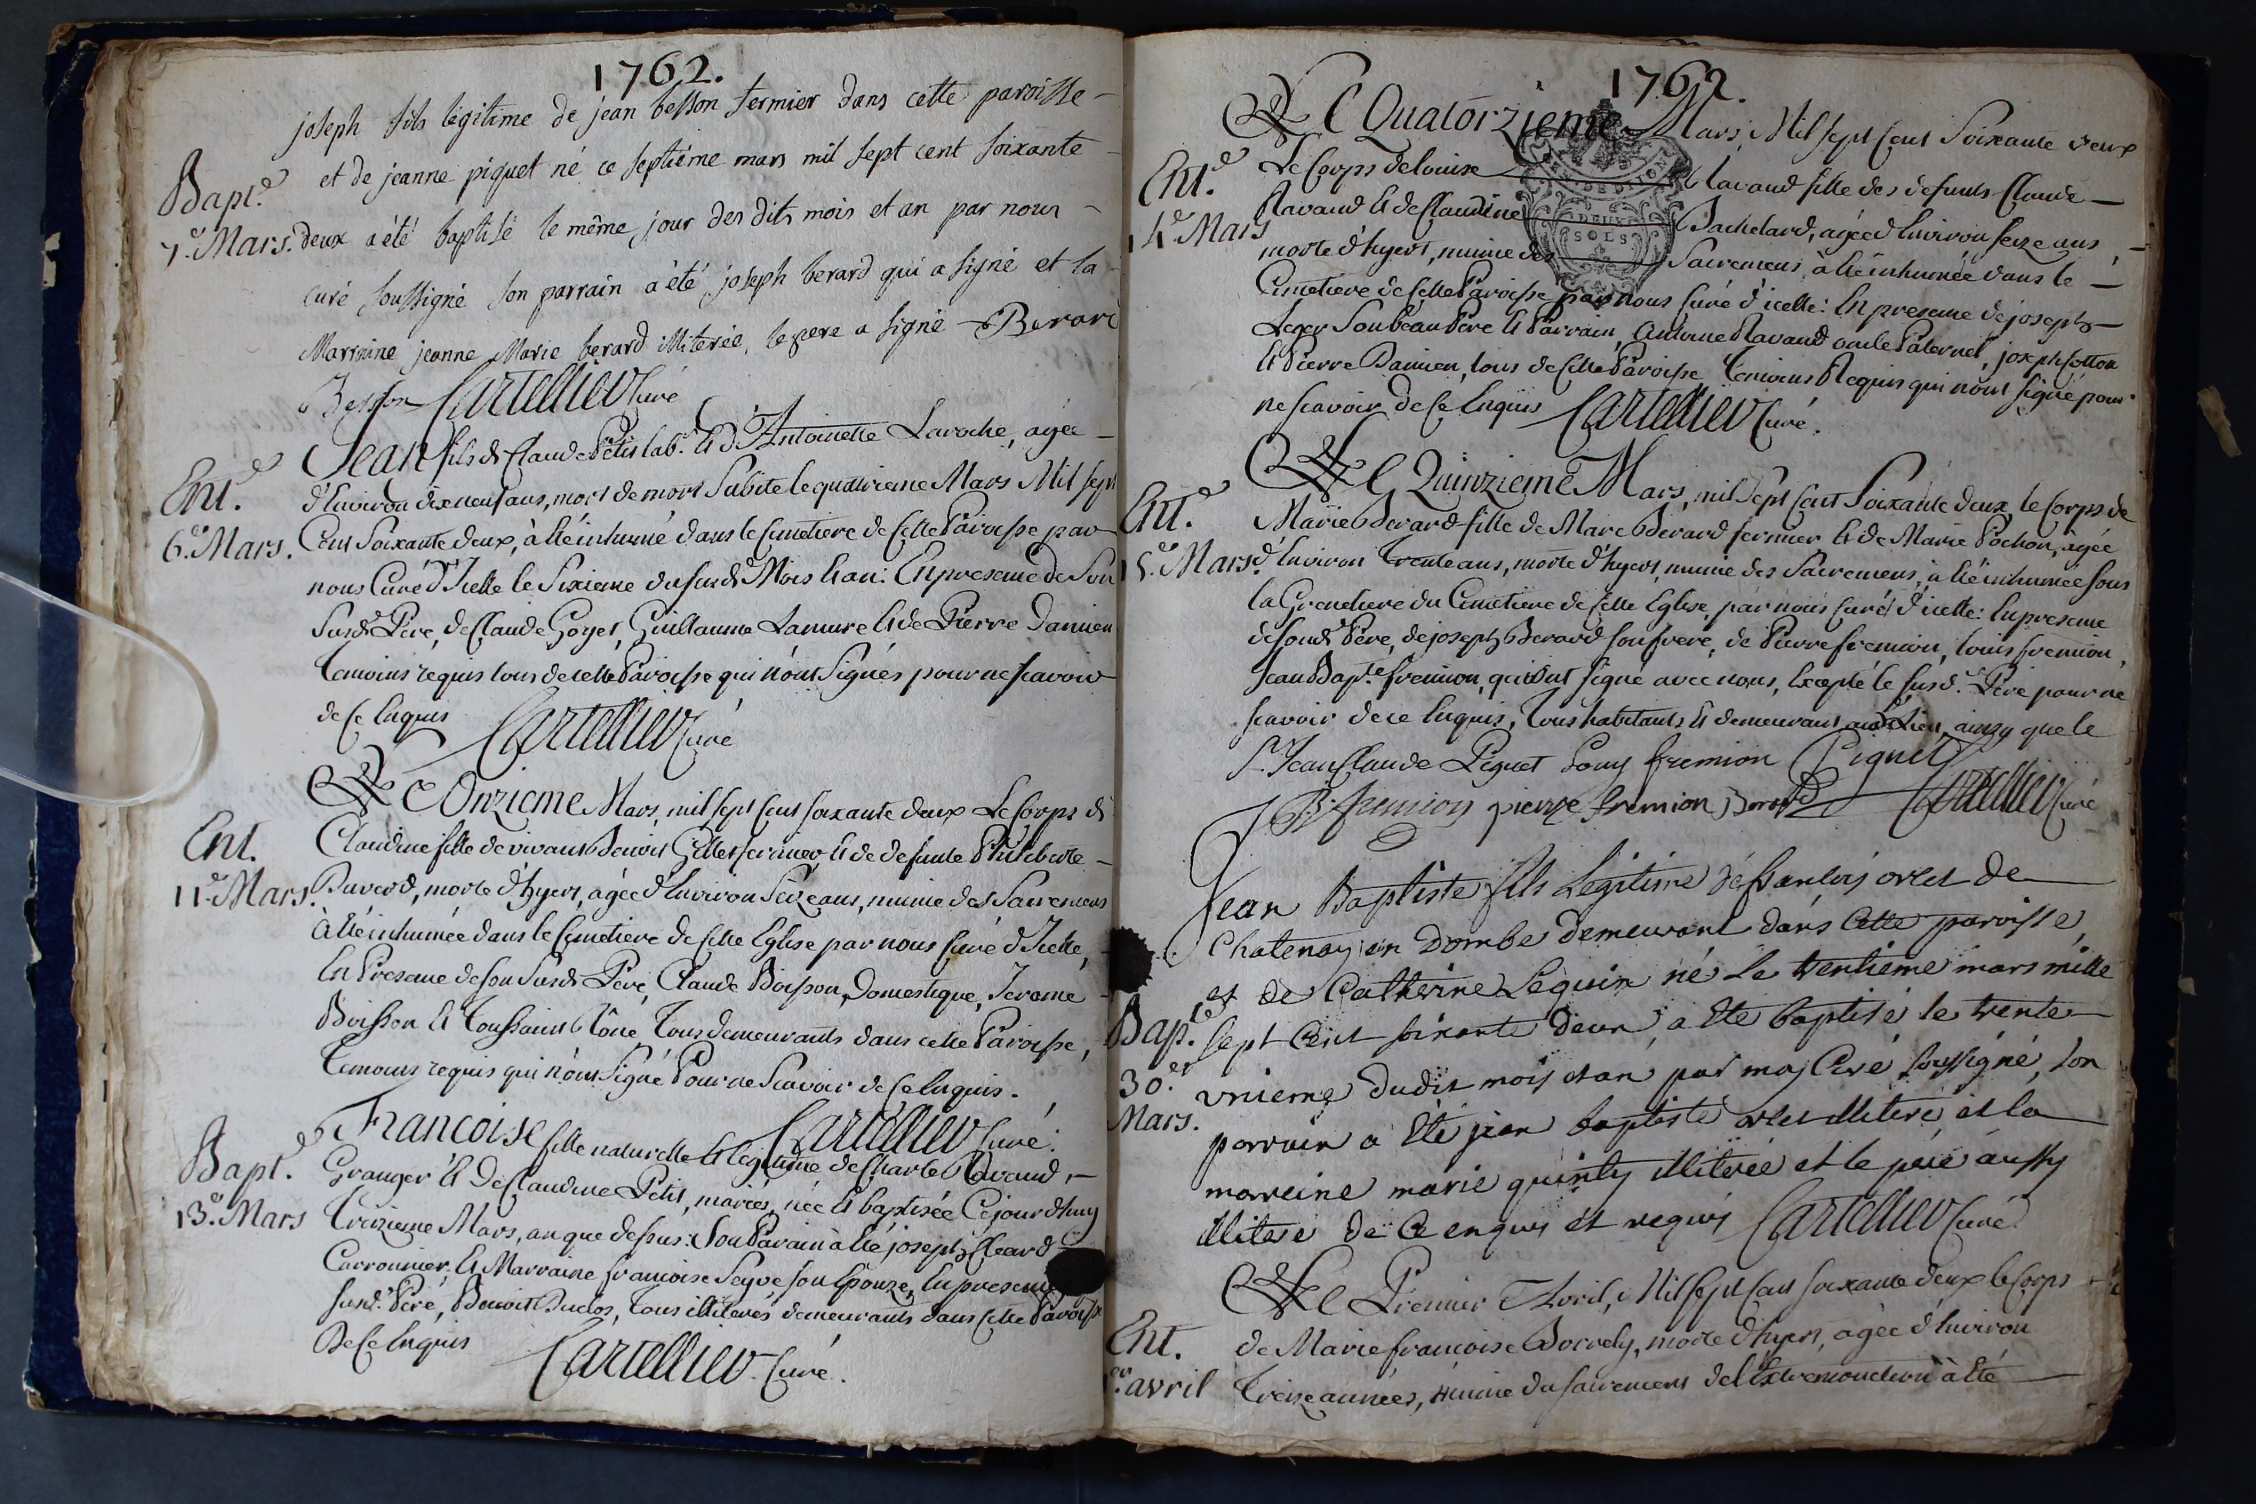 1762.
joseph fils legitime de jean besson fermier dans cette paroisse
et de jeanne piquet né ce septiéme mars mil sept cent soixante
Bapt.e
7.e Mars.
deux a été baptisé le même jour des dits mois et an par nous
curé soussigné son parrain a été joseph berard qui a signé et la
Marraine jeanne Marie berard illiterée, le pere a signé Berard
Besson Cartellier Curé
Jean fils de Claude Petit lab.r et d'Antoinette Laroche, agée
Ent.e
6.e Mars.
d'Environ dix neuf ans, mort de mort Subite le quatrieme Mars Mil sept
Cent Soixante deux, à été inhumé dans le Cimetiere de Cette Paroisse par
nous Curé d'Icelle le Sixieme du susd. Mois et an: En presence de Son
Susd. Pere, de Claude Goyet, Guillaume Lamure et de Pierre Damien
temoins requis tous de cette Paroisse qui n'ont Signés pour ne scavoir
de Ce Enquis Cartellier Curé
Le Onzieme Mars, mil sept Cent soixante deux Le Corps de
Ent.
11.e Mars.
Claudine fille de vivant Benoit Gillet fermier et de defunte Philiberte
Buverd, morte d'hyert, agée d'Environ Seize ans, munie des Sacremens
à été inhumée dans le Cimetiere de Cette Eglise par nous Curé d'Icelle,
En Presence de son Susd. Pere, Claude Boisson, Domestique, Jerome
Boisson et Toussaint Tône Tous demeurants dans cette Paroisse,
temoins requis qui n'ont Signé Pour ne Scavoir de Ce Enquis.
Cartellier Curé.
Bapt.e
13.e Mars
Francoise fille naturelle et legitime de Charle Ravaud,
Granger et de Claudine Petit, mariés, née et baptisée Ce jourd'huy
Treizieme Mars, an que dessus: Son Parain à été joseph Cleard
Carronnier, et Marraine francoise Seyve son Epouze, En presence
susd. Peré, Benoit Duclos, tous illiterés demeurants dans Cette Paroisse
De Ce Enquis Cartellier Curé.
1762.
Le Quatorzieme Mars, Mil sept Cent Soixante deux
DEUX
SOLS
Ent.e
14.e Mars
Le Corps de Louise Ravaud fille des defunts Claude
Ravaud et de Claudine Bachelard, agée d'Environ seize ans
morte d'hyert, munie des Sacremens, à été inhumée dans le
Cimetiere de Cette Paroisse par nous Curé d'icelle: En presence de joseph
Leger Son beau Pere et Parrain, Antoine Ravaud oncle Paternel, joseph Cotton
et Pierre Damien, tous de Cette Paroisse Temoins Requis qui n'ont signé pour
ne scavoir de Ce Enquis Cartellier Curé.
Le Quinzieme Mars, mil Sept Cent Soixante deux, le Corps de
Ent.e
15.e Mars.
Marie Berard fille de Marc Berard fermier et de Marie Pochon, agée
d'Environ Trente ans, morte d'hyert, munie des Sacremens, à été inhumée sous
la Grenetiere du Cimetiere de Cette Eglise, par nous Curé d'icelle: En presence
de sond. Pere, de joseph Berard son frere, de Pierre fremion, Louis fremion,
Jean Bap.te fremion, qui ont signé avec nous, Excepté le susd. Pere pour ne
scavoir de ce Enquis, Tous habitants et demeurant aud. Lieu, ainsy que le
S.r Jean Claude Piquet Louy fremion Piquet
J B. fremion pierre fremion Berard Cartellier Curé
Jean Baptiste fils Legitime de francois orlet de
Chatenay en Dombe demeurant dans Cette paroisse,
et de Catherine Seguin né Le trentieme mars mille
Bap.t
30.e
Mars.
sept Cent soixante deux, a Eté baptisé le trente
unieme dudit mois et an par moy Curé soussigné, son
parrain a Eté jean baptiste orlet illiteré et la
marreine marie quinty illiterée et le pere aussy
illiteré de Ce enquis et requis Cartellier Curé.
Le Premier Avril, Mil sept Cent soixante deux le Corps
Ent.
1.er avril
de Marie francoise Borrely, morte d'hyert, agée d'Environ
Treize années, munie du sacrement de l'Extremonction à Eté